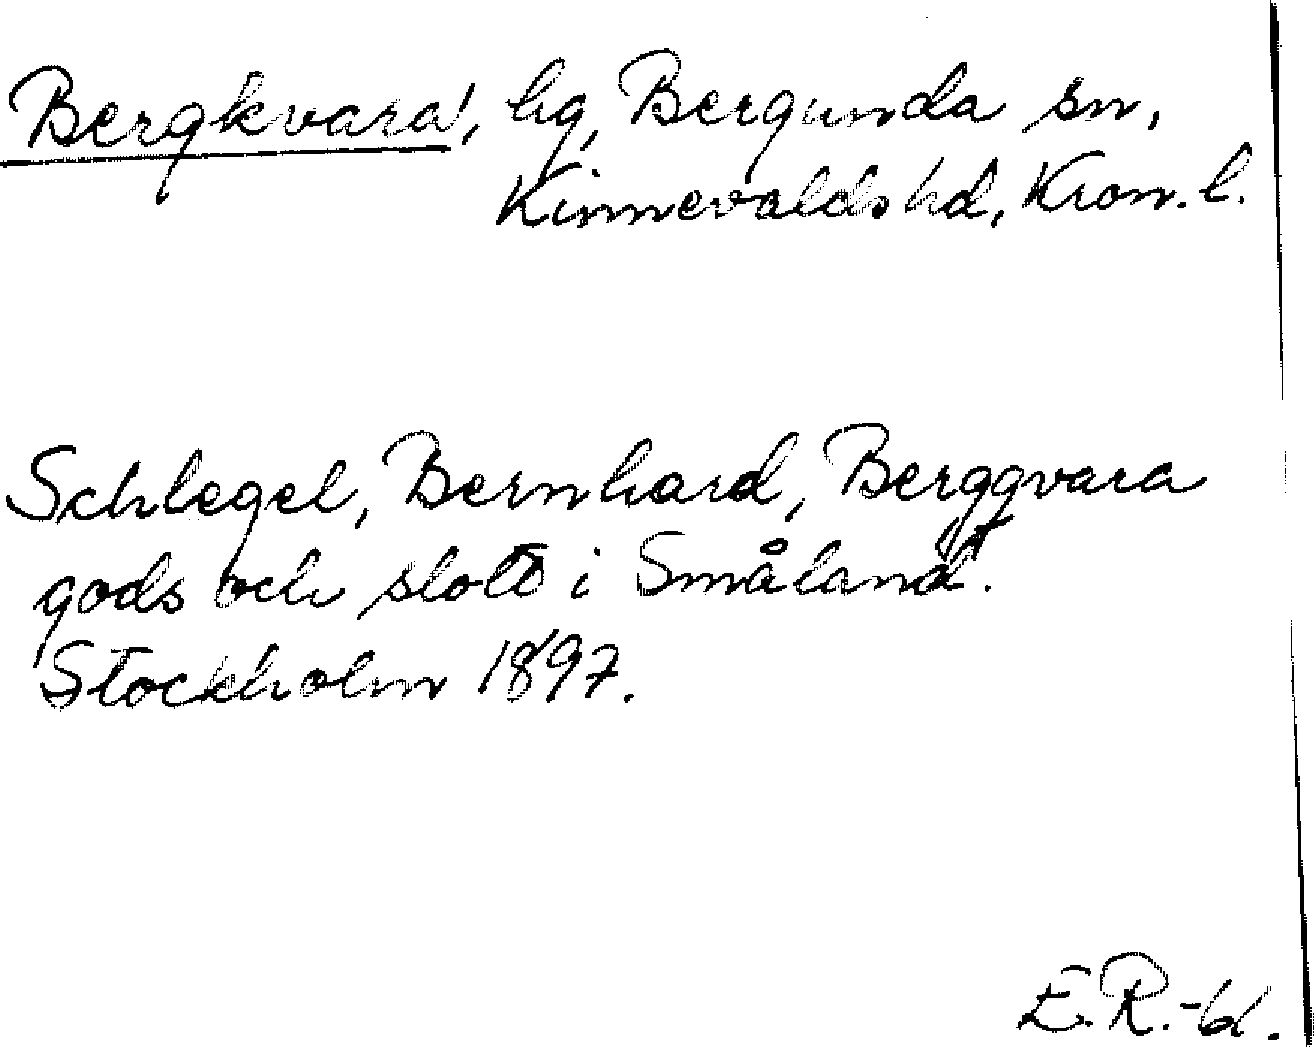 Bergkvara, hg, Bergunda sn,
Kinnevalds hd, Kron. l.
Schlegel, Bernhard, Bergqvara
gods och slott i Småland.
Stockholm 1897.
E. R.